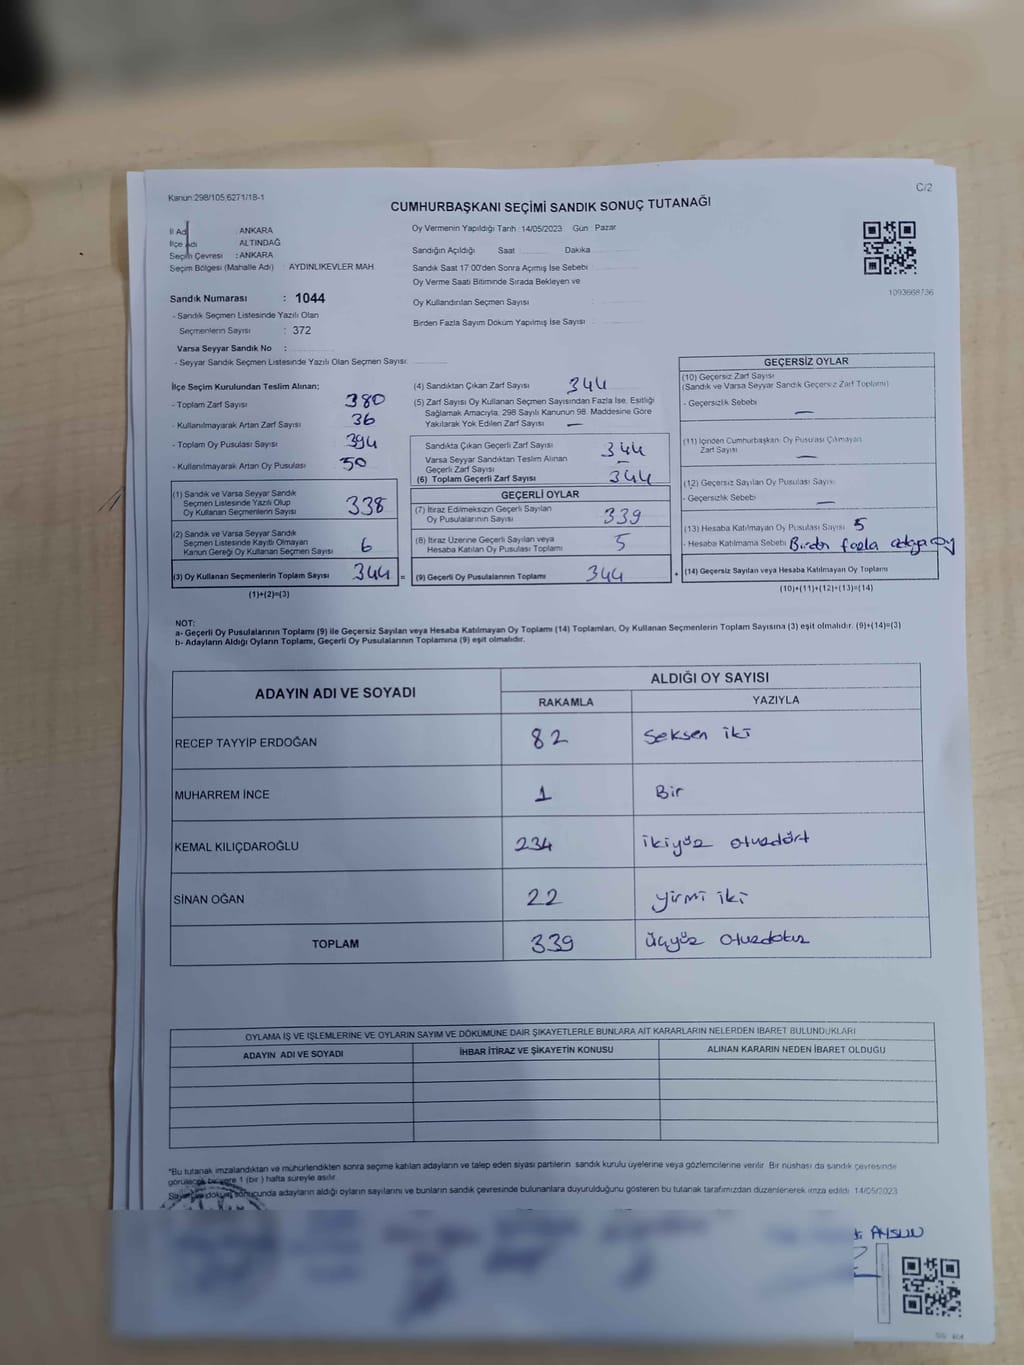 Kanun:298/105,6271/18-1
C/2
CUMHURBAŞKANI SEÇİMİ SANDIK SONUÇ TUTANAĞI
İl Adı : ANKARA
İlçe Adı : ALTINDAĞ
Seçim Çevresi : ANKARA
Seçim Bölgesi (Mahalle Adı) : AYDINLIKEVLER MAH
Sandık Numarası : 1044
- Sandık Seçmen Listesinde Yazılı Olan
Seçmenlerin Sayısı : 372
Varsa Seyyar Sandık No :
- Seyyar Sandık Seçmen Listesinde Yazılı Olan Seçmen Sayısı:
Oy Vermenin Yapıldığı Tarih :14/05/2023 Gün Pazar
Sandığın Açıldığı Saat Dakika
Sandık Saat 17:00'den Sonra Açımış İse Sebebi
Oy Verme Saati Bitiminde Sırada Bekleyen ve
Oy Kullandırılan Seçmen Sayısı :
Birden Fazla Sayım Döküm Yapılmış İse Sayısı :
1093668736
İlçe Seçim Kurulundan Teslim Alınan;
- Toplam Zarf Sayısı 380
- Kullanılmayarak Artan Zarf Sayısı 36
- Toplam Oy Pusulası Sayısı 394
- Kullanılmayarak Artan Oy Pusulası 50
(1) Sandık ve Varsa Seyyar Sandık
Seçmen Listesinde Yazılı Olup
Oy Kullanan Seçmenlerin Sayısı 338
(2) Sandık ve Varsa Seyyar Sandık
Seçmen Listesinde Kayıtlı Olmayan
Kanun Gereği Oy Kullanan Seçmen Sayısı 6
(3) Oy Kullanan Seçmenlerin Toplam Sayısı 344 =
(1)+(2)=(3)
(4) Sandıktan Çıkan Zarf Sayısı 344
(5) Zarf Sayısı Oy Kullanan Seçmen Sayısından Fazla İse, Eşitliği
Sağlamak Amacıyla, 298 Sayılı Kanunun 98. Maddesine Göre
Yakılarak Yok Edilen Zarf Sayısı —
Sandıkta Çıkan Geçerli Zarf Sayısı 344
Varsa Seyyar Sandıktan Teslim Alınan
Geçerli Zarf Sayısı —
(6) Toplam Geçerli Zarf Sayısı 344
GEÇERLİ OYLAR
(7) İtiraz Edilmeksizin Geçerli Sayılan
Oy Pusulalarının Sayısı 339
(8) İtiraz Üzerine Geçerli Sayılan veya
Hesaba Katılan Oy Pusulası Toplamı 5
(9) Geçerli Oy Pusulalarının Toplamı 344 +
GEÇERSİZ OYLAR
(10) Geçersiz Zarf Sayısı
(Sandık ve Varsa Seyyar Sandık Geçersiz Zarf Toplamı)
- Geçersizlik Sebebi —
(11) İçinden Cumhurbaşkanı Oy Pusulası Çıkmayan
Zarf Sayısı —
(12) Geçersiz Sayılan Oy Pusulası Sayısı
- Geçersizlik Sebebi —
(13) Hesaba Katılmayan Oy Pusulası Sayısı 5
- Hesaba Katılmama Sebebi Birden fazla oy
(14) Geçersiz Sayılan veya Hesaba Katılmayan Oy Toplamı
(10)+(11)+(12)+(13)=(14)
NOT:
a- Geçerli Oy Pusulalarının Toplamı (9) ile Geçersiz Sayılan veya Hesaba Katılmayan Oy Toplamı (14) Toplamları, Oy Kullanan Seçmenlerin Toplam Sayısına (3) eşit olmalıdır. (9)+(14)=(3)
b- Adayların Aldığı Oyların Toplamı, Geçerli Oy Pusulalarının Toplamına (9) eşit olmalıdır.
ADAYIN ADI VE SOYADI ALDIĞI OY SAYISI
RAKAMLA YAZIYLA
RECEP TAYYİP ERDOĞAN 82 Seksen iki
MUHARREM İNCE 1 Bir
KEMAL KILIÇDAROĞLU 234 ikiyüz otuzdört
SİNAN OĞAN 22 yirmi iki
TOPLAM 339 üçyüz otuzdokuz
OYLAMA İŞ VE İŞLEMLERİNE VE OYLARIN SAYIM VE DÖKÜMÜNE DAİR ŞİKAYETLERLE BUNLARA AİT KARARLARIN NELERDEN İBARET BULUNDUKLARI
ADAYIN ADI VE SOYADI İHBAR İTİRAZ VE ŞİKAYETİN KONUSU ALINAN KARARIN NEDEN İBARET OLDUĞU
*Bu tutanak imzalandıktan ve mühürlendikten sonra seçime katılan adayların ve talep eden siyasi partilerin sandık kurulu üyelerine veya gözlemcilerine verilir. Bir nüshası da sandık çevresinde
görülecek bir yere 1 (bir) hafta süreyle asılır.
Sayım ve döküm sonucunda adayların aldığı oyların sayılarını ve bunların sandık çevresinde bulunanlara duyurulduğunu gösteren bu tutanak tarafımızdan düzenlenerek imza edildi. 14/05/2023